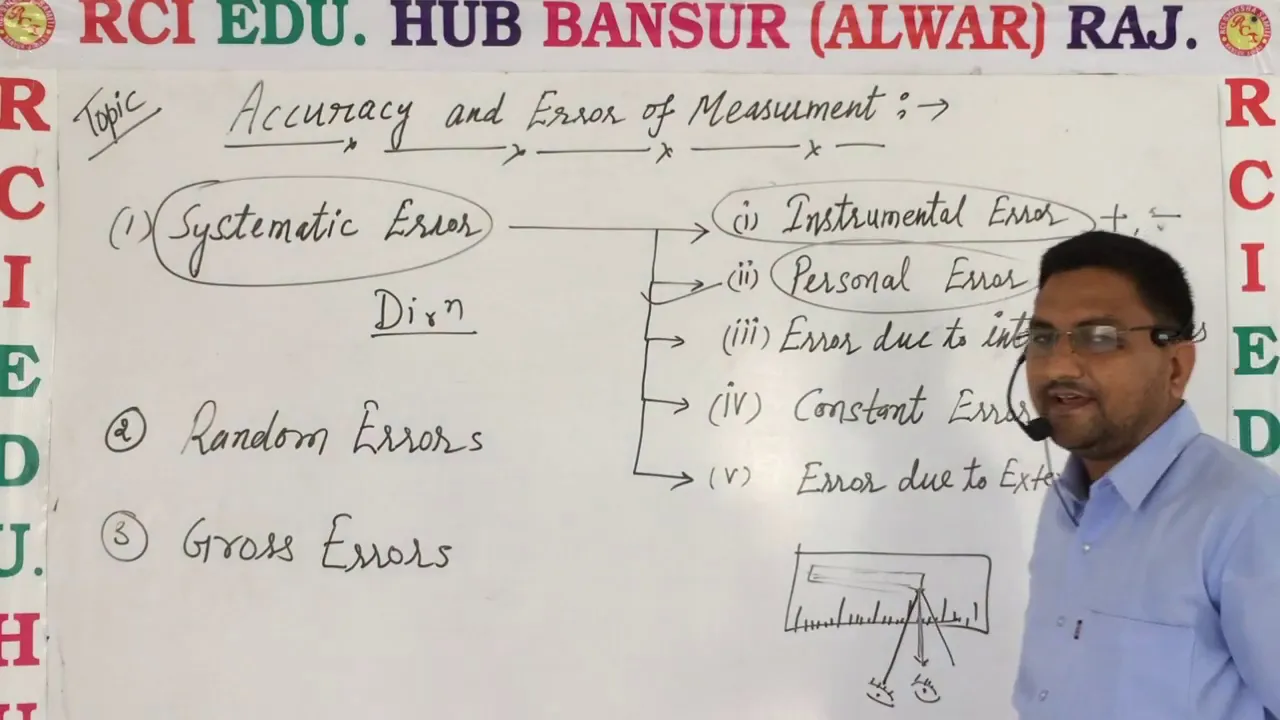 RCI EDU. HUB BANSUR (ALWAR) RAJ.
Topic
Accuracy and Error of Measurment :→
(1) Systematic Error
Dirn
(i) Instrumental Error +, -
(ii) Personal Error
(iii) Error due to
(iv) Constant Error
(v) Error due to
② Random Errors
③ Gross Errors
R
C
I
E
D
U.
H
R
C
I
E
D